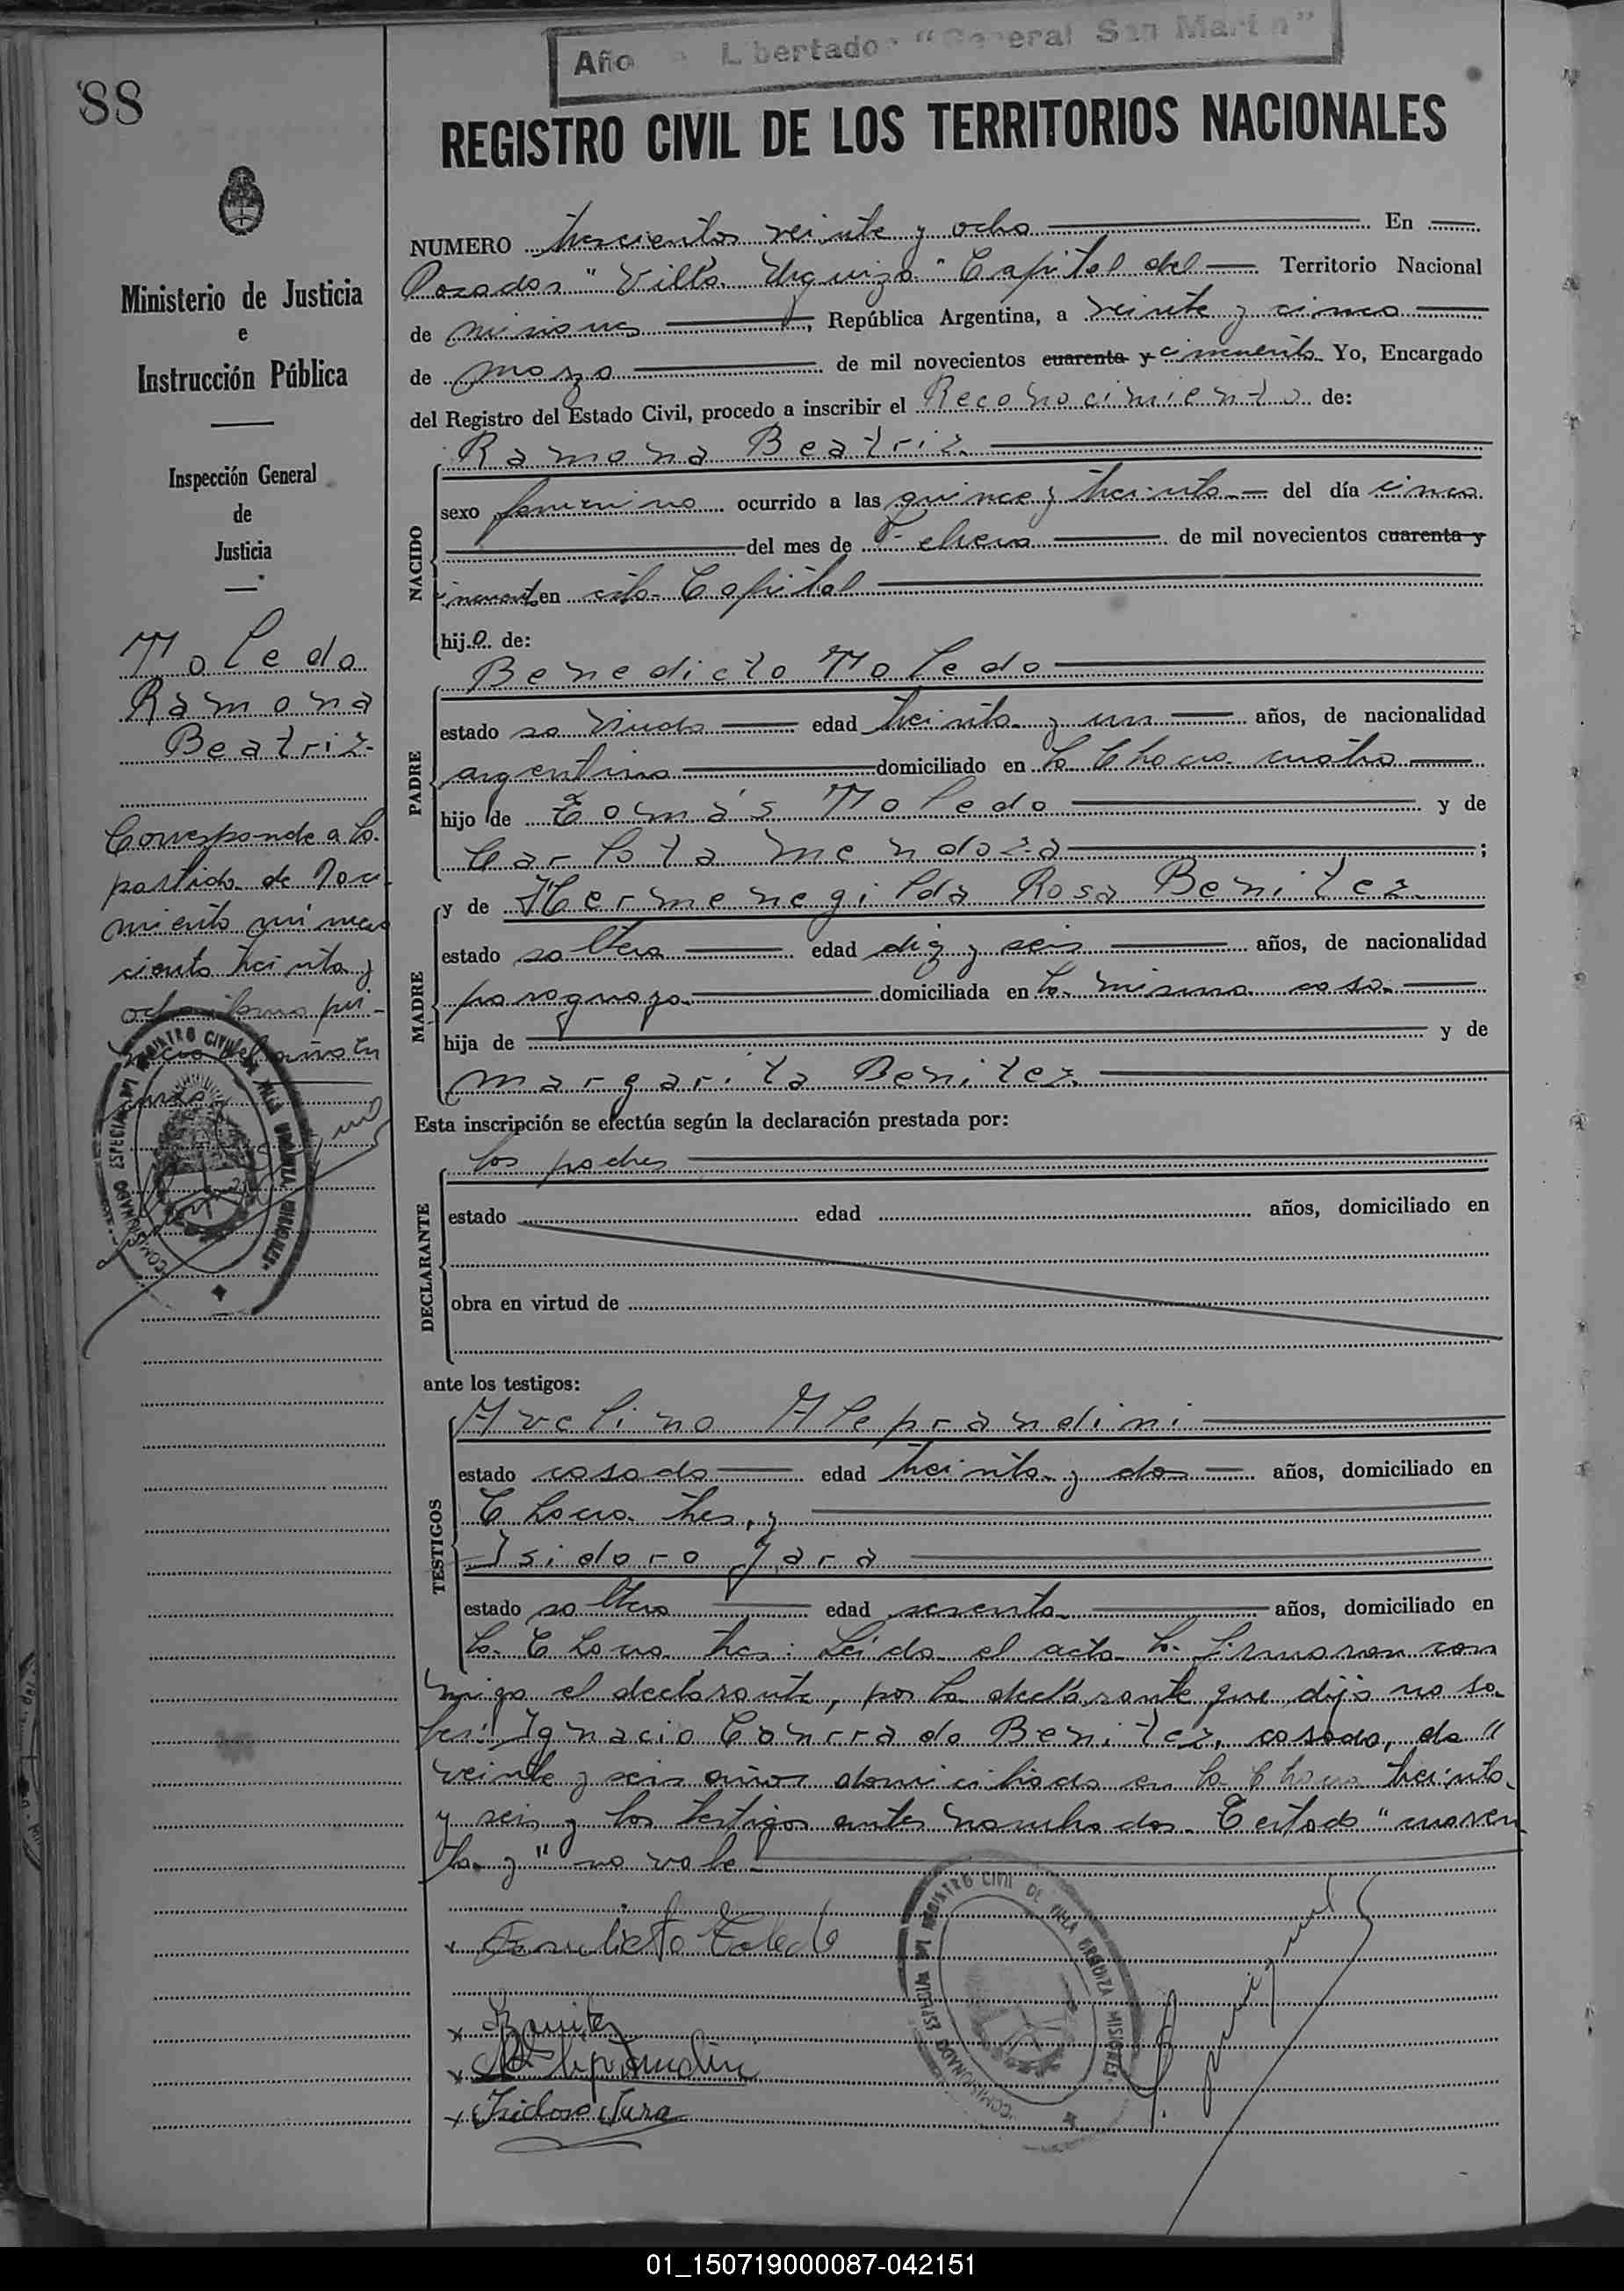 Año Libertador "General San Martín"
88
REGISTRO CIVIL DE LOS TERRITORIOS NACIONALES
Ministerio de Justicia
e
Instrucción Pública
Inspección General
de
Justicia
Toledo
Ramona
Beatriz
Corresponde a la
partida de Naci
miento número
ciento treinta y
ocho
NUMERO trescientos veinte y ocho En
Posadas "Villa Urquiza" Capital del Territorio Nacional
de Misiones, República Argentina, a veinte y cinco
de marzo de mil novecientos cuarenta y cincuenta Yo, Encargado
del Registro del Estado Civil, procedo a inscribir el Reconocimiento de:
Ramona Beatriz
NACIDO
sexo femenino ocurrido a las quince y treinta del día cinco
del mes de Febrero de mil novecientos cuarenta y
cincuenta en esta Capital
hija de:
Benedicto Toledo
PADRE
estado edad treinta y un años, de nacionalidad
argentina domiciliado en la Chacra cuatro
hijo de Tomás Toledo y de
Carlota Mendoza;
MADRE
y de Hermenegilda Rosa Benitez
estado soltera edad diez y seis años, de nacionalidad
paraguaya domiciliada en la misma casa
hija de y de
Margarita Benitez
Esta inscripción se efectúa según la declaración prestada por:
DECLARANTE
los padres
estado edad años, domiciliado en
obra en virtud de
ante los testigos:
TESTIGOS
Avelino Aleprandini
estado casado edad treinta y dos años, domiciliado en
Chacra tres, y
Isidoro Jara
estado soltero edad sesenta años, domiciliado en
la Chacra tres: Leida el acta la firmaron con
migo el declarante, por la declarante que dijo no sa
ber: Ignacio Conrrado Benitez, casado, de
veinte y seis años domiciliado en la Chacra treinta
y seis y los testigos antes nombrados. Testado "cuaren
ta y" no vale
Benedicto Toledo
Benitez
A Aleprandini
Isidoro Jara
REGISTRO CIVIL DE VILLA URQUIZA MISIONES
COMISIONADO ESPECIAL
01_150719000087-042151